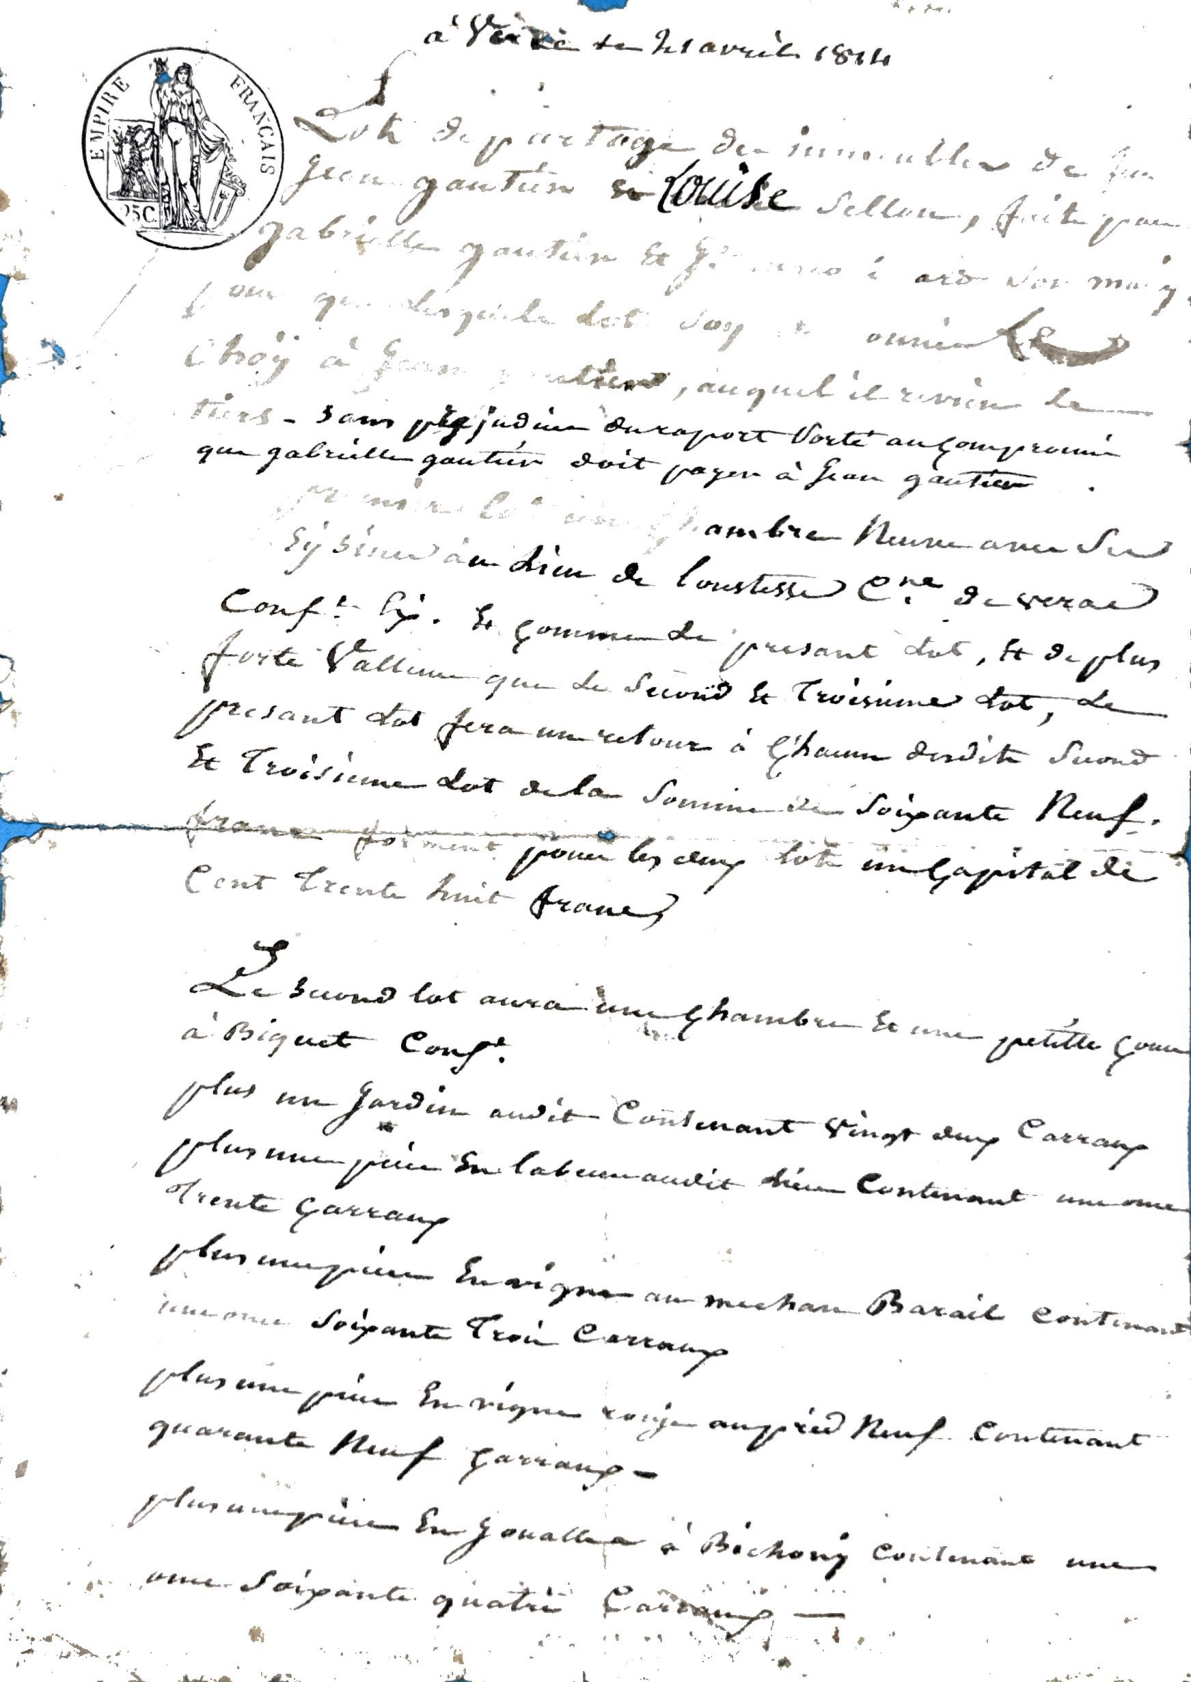 à Verac le 21 avril 1814
EMPIRE FRANÇAIS
25C
Lots de partage des immeubles de feu
Jean gautier et Louise Sellon, fait par
gabrielle gautier et son mary
pour que lesquels lots soy
Choÿ à Jean gautier, auquel il revien le
tiers - sans préjudice du raport porté au compromis
que gabrielle gautier doit payer à Jean gautier.
premier lot une Chambre Neuve avec Ses
au lieu de loustesse Cne. de verac
Conft. Et comme le presant lot, Et de plus
forte Valleur que le Second Et Troisieme lot, le
presant lot fera un retour à Chacun desdits Second
Et Troisieme lot de la Somme de Soixante Neuf.
francs forment pour les deux lots un Capital de
Cent Trente huit francs
Le Second lot aura une Chambre Et une petitte Cour
à Biquet Conft.
plus un Jardin audit Contenant vingt deux Carraux
plus une pièce En labeur audit lieu Contenant une once
Trente Carraux
plus une pièce En vigne au mechan Barail Contenant
une once Soixante Trois Carraux
plus une pièce En vigne rouge au pied Neuf Contenant
quarante Neuf Carraux -
plus une pièce En Joualle à Bichony Contenant une
once Soixante quatre Carraux —